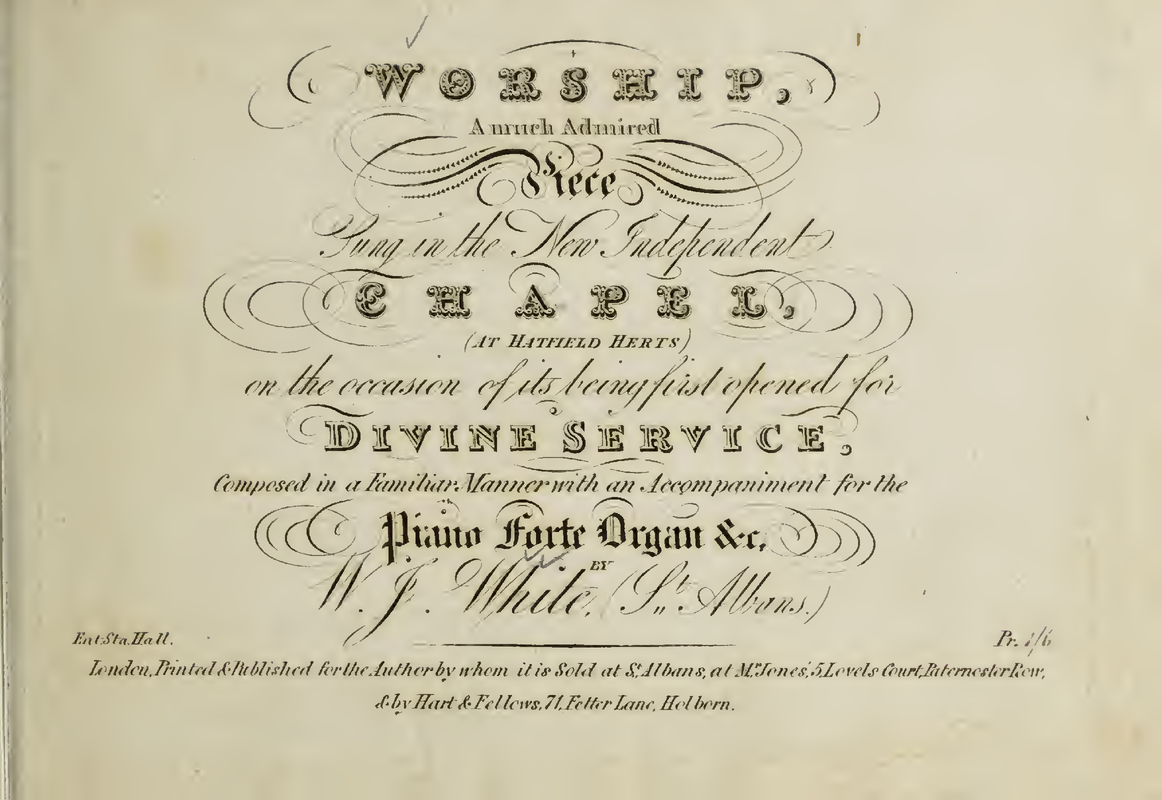 WORSHIP,
A much Admired
Piece
Sung in the New Independent
CHAPEL,
(AT HATFIELD HERTS)
on the occasion of its being first opened for
DIVINE SERVICE,
Composed in a Familiar Manner with an Accompaniment for the
Piano Forte Organ &c,
BY
W. J. White, (St. Albans.)
Ent. Sta. Hall.
Pr. 1/6
London, Printed & Published for the Author by whom it is Sold at St. Albans, at Mr. Jones', 5, Lovels Court, Paternoster Row,
& by Hart & Fellows, 71, Fetter Lane, Holborn.